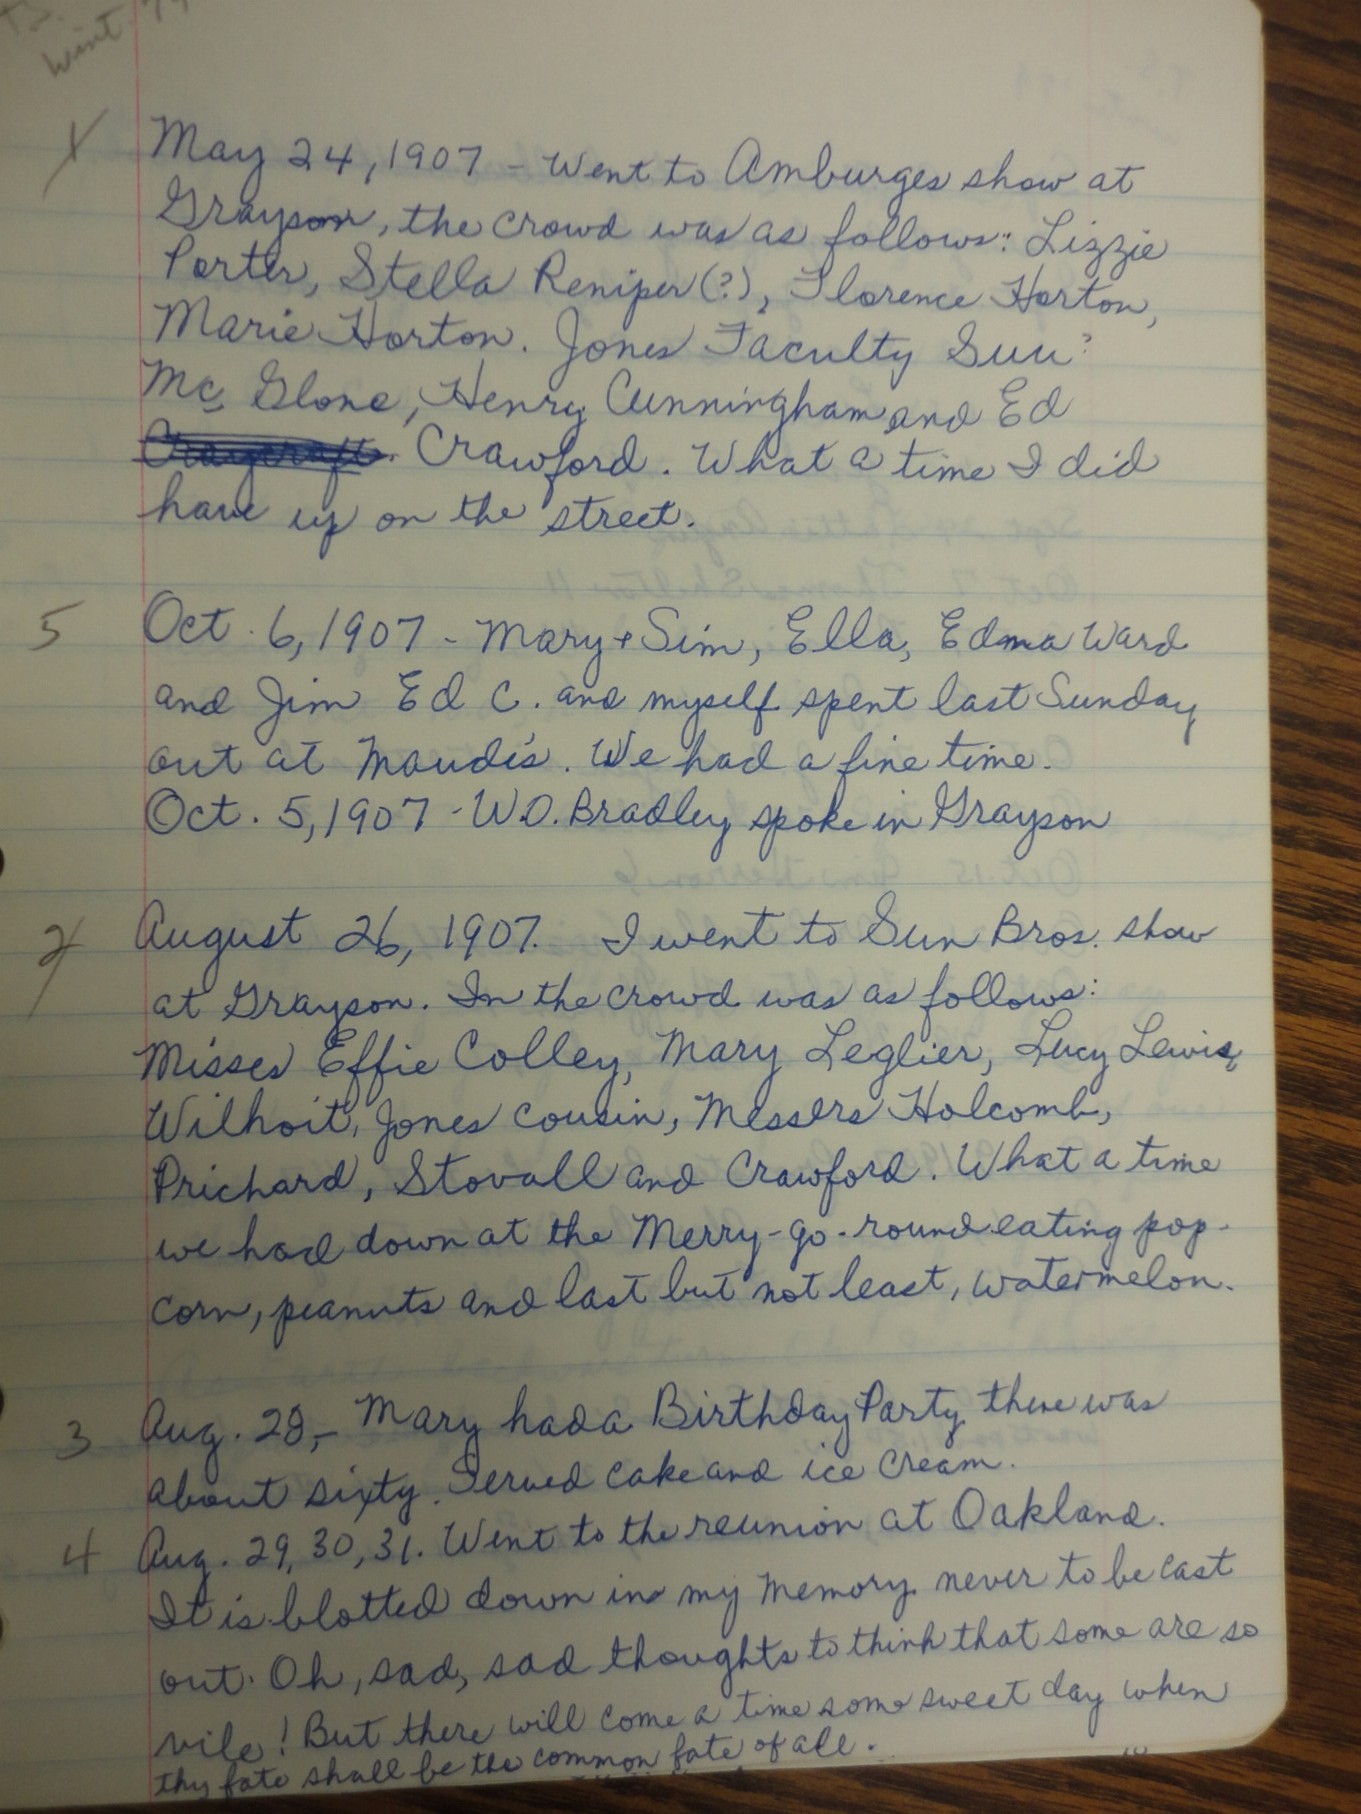 Wint
1 May 24, 1907 - Went to Amburges show at
Grayson, the crowd was as follows: Lizzie
Porter, Stella Reniper(?), Florence Horton,
Marie Horton. Jones Faculty Guu?
Mc Glone, Henry Cunningham and Ed
Craycraft. Crawford. What a time I did
have up on the street.
5 Oct. 6, 1907 - Mary + Sim, Ella, Edma Ward
and Jim Ed C. and myself spent last Sunday
out at Maudi's. We had a fine time.
Oct. 5, 1907 - W.O. Bradley spoke in Grayson
2 August 26, 1907. I went to Sun Bros. show
at Grayson. In the crowd was as follows:
Misses Effie Colley, Mary Leglier, Lucy Lewis,
Wilhoit, Jones cousin, Messers Holcomb,
Prichard, Stovall and Crawford. What a time
we had down at the Merry-go-round eating pop-
corn, peanuts and last but not least, watermelon.
3 Aug. 28, - Mary had a Birthday Party there was
about sixty. Served cake and ice cream.
4 Aug. 29, 30, 31. Went to the reunion at Oakland.
It is blotted down in my memory never to be cast
out. Oh, sad, sad thoughts to think that some are so
vile! But there will come a time some sweet day when
thy fate shall be the common fate of all.